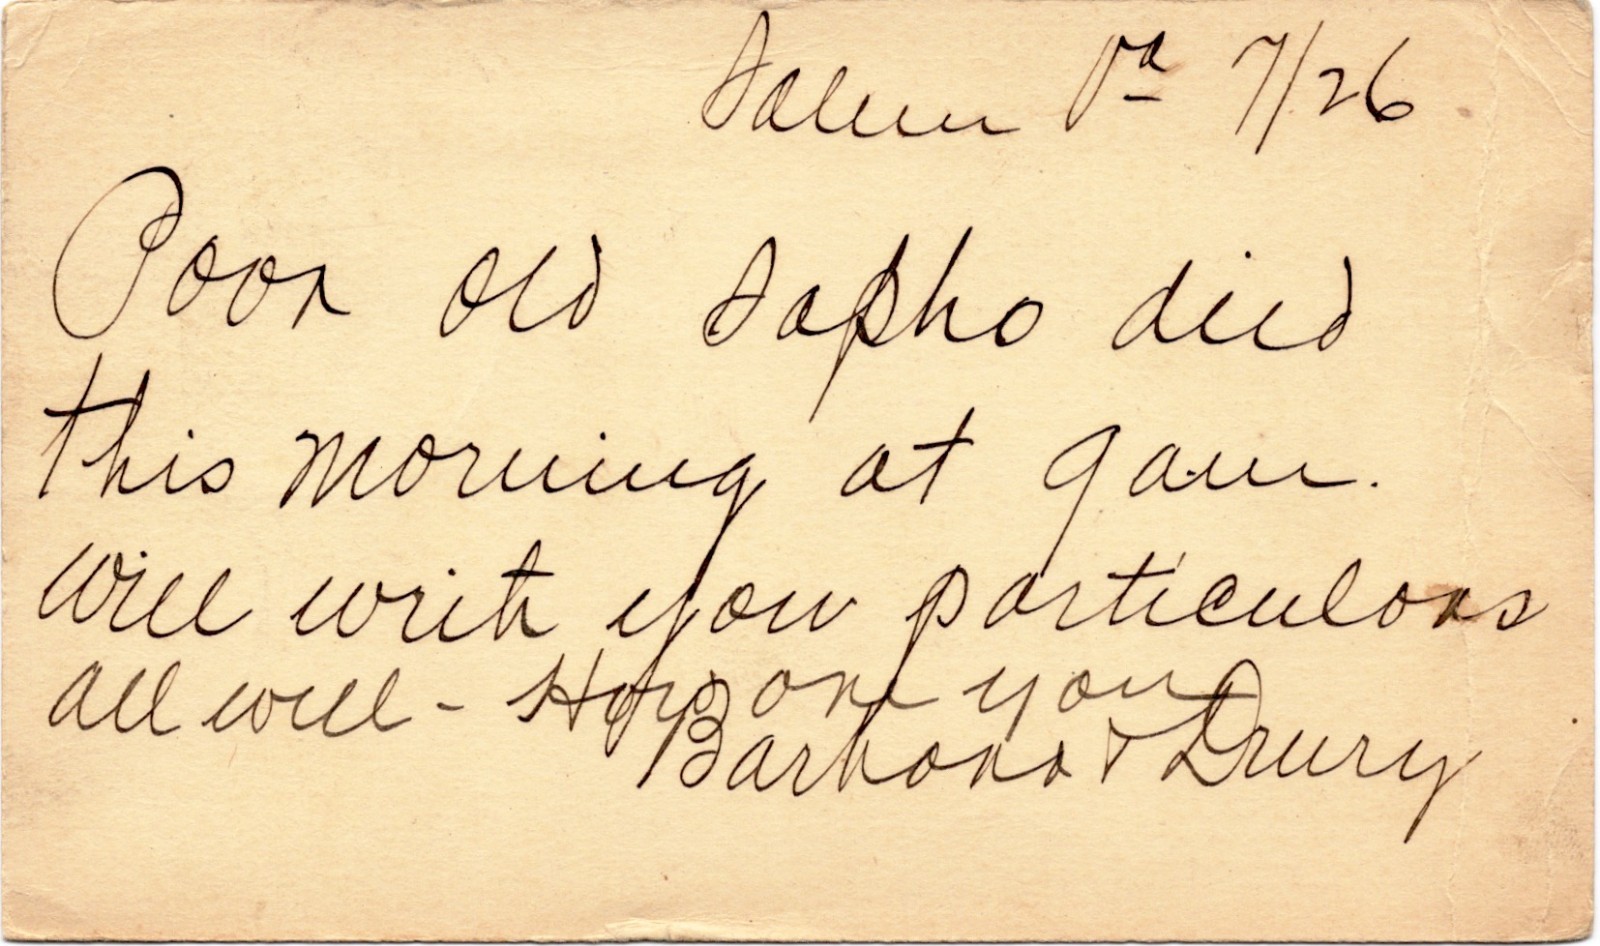 Salem Va 7/26
Poor old Sapho died
this morning at 9 am.
Will write you particulars
all well - Hope are you
Barbara & Drury